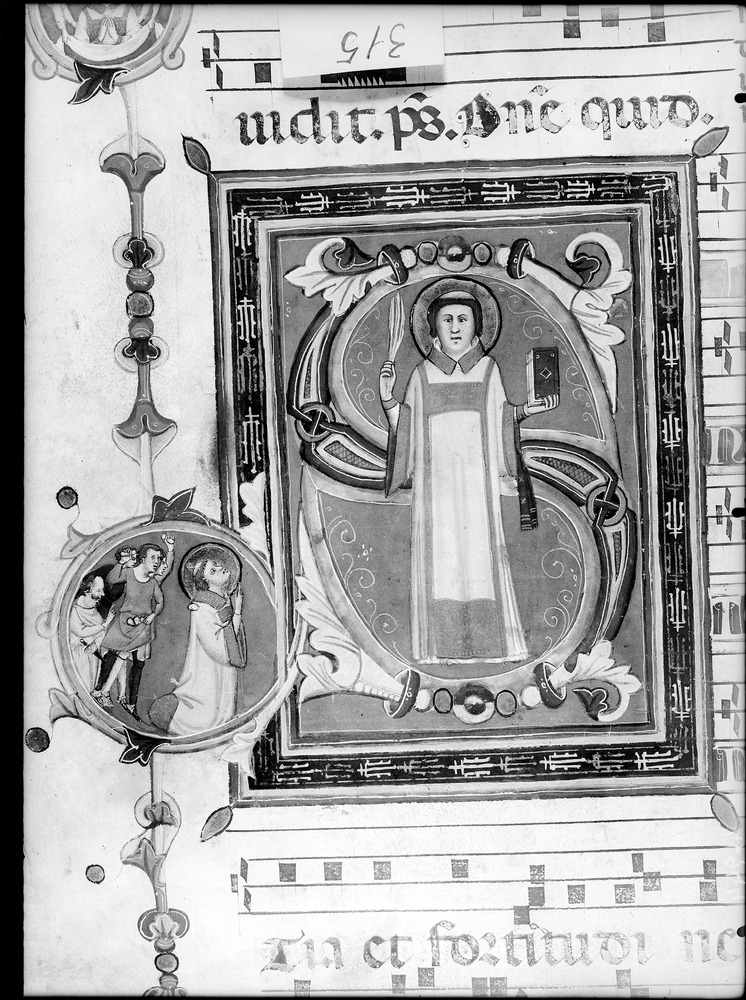 315
uidit. ps. Dne quid.
S
Tia et fortitudi ne